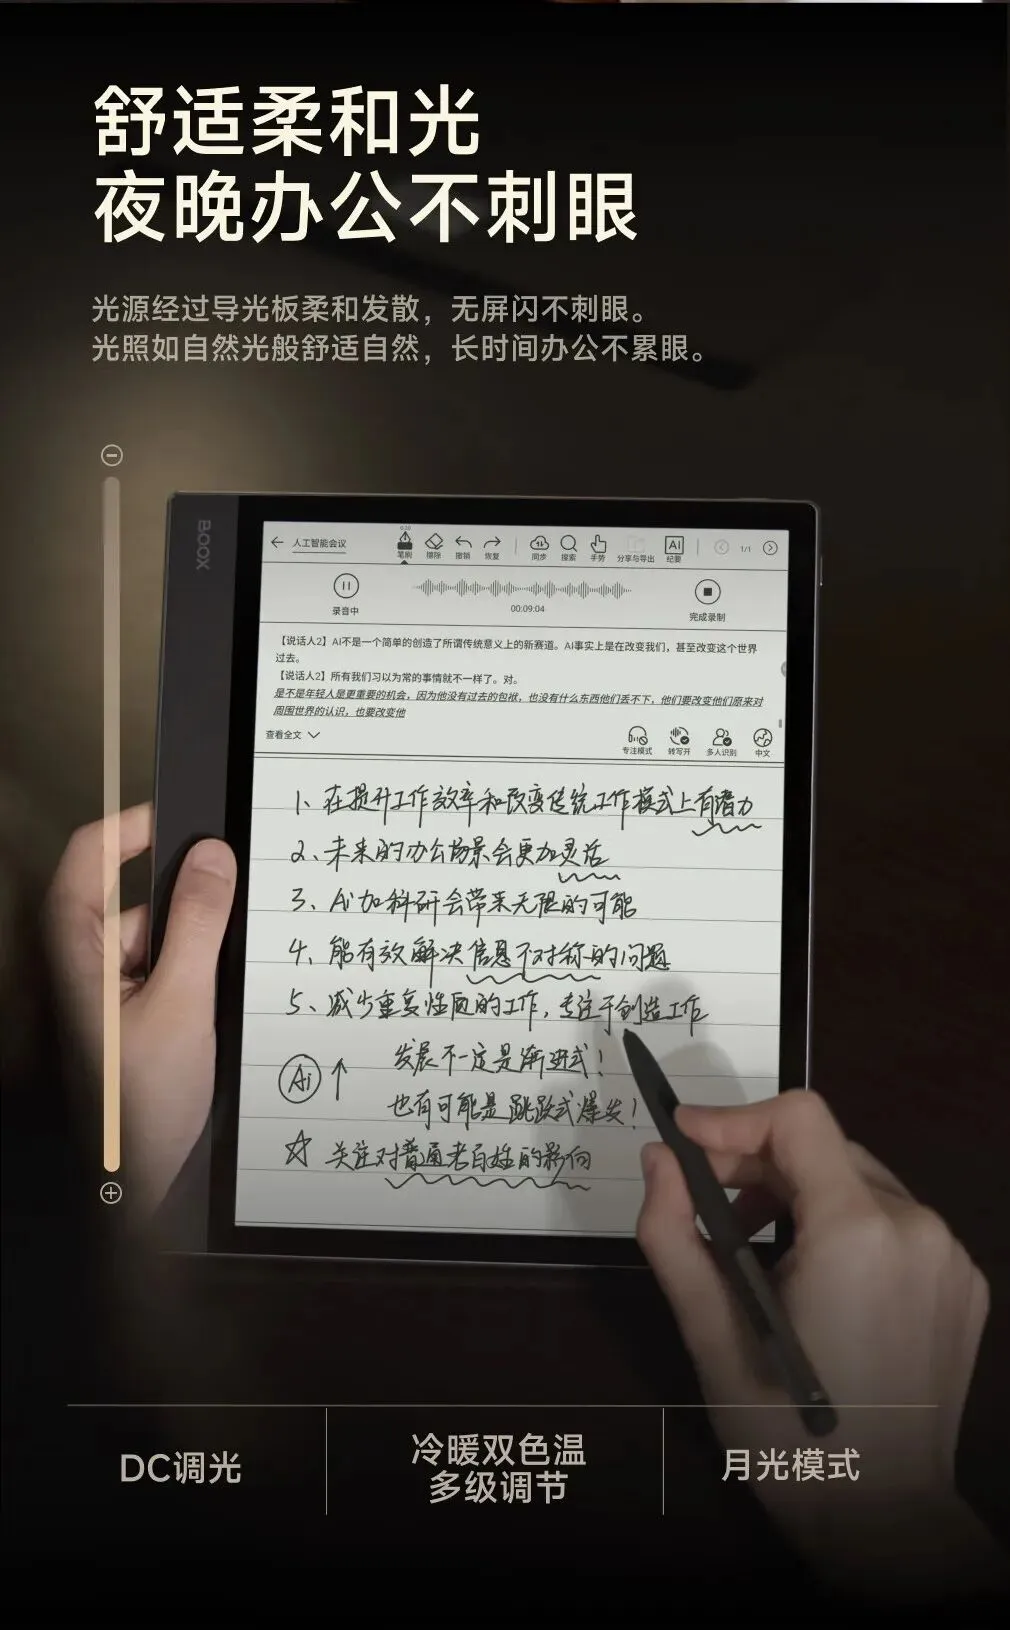 舒适柔和光
夜晚办公不刺眼
光源经过导光板柔和发散，无屏闪不刺眼。
光照如自然光般舒适自然，长时间办公不累眼。
BOOX
人工智能会议
笔刷 擦除 撤销 恢复 同步 搜索 手势 分享与导出 AI 纪要 1/1
录音中
00:09:04
完成录制
【说话人2】AI不是一个简单的创造了所谓传统意义上的新赛道。AI事实上是在改变我们，甚至改变这个世界
过去。
【说话人2】所有我们习以为常的事情就不一样了。对。
是不是年轻人是更重要的机会，因为他没有过去的包袱，也没有什么东西他们丢不下，他们要改变他们原来对
周围世界的认识，也要改变他
查看全文
专注模式 转写开 多人识别 中文
1、在提升工作效率和改变传统工作模式上有潜力
2、未来的办公场景会更加灵活
3、Ai加科研会带来无限的可能
4、能有效解决信息不对称的问题
5、减少重复性质的工作，专注于创造工作
发展不一定是渐进式！
Ai
也有可能是跳跃式爆发！
关注对普通老百姓的影响
DC调光
冷暖双色温
多级调节
月光模式